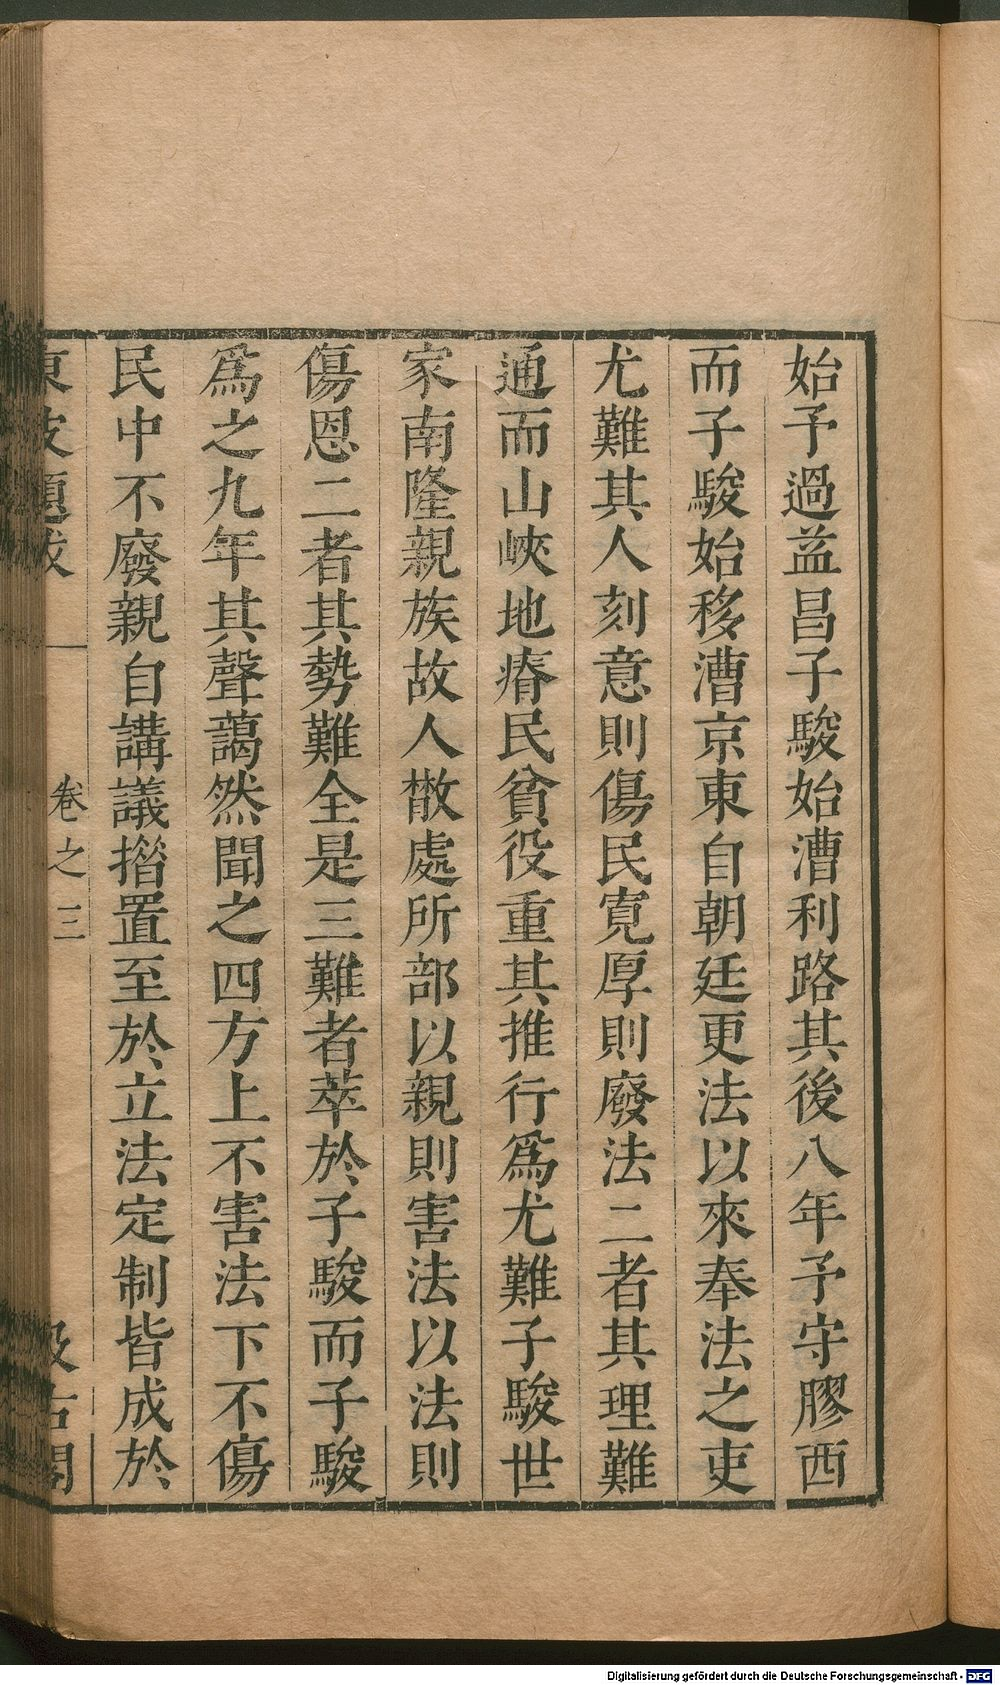 始予過益昌子駿始漕利路其後八年予守膠西
而子駿始移漕京東自朝廷更法以來奉法之吏
尤難其人刻意則傷民寬厚則廢法二者其理難
通而山峽地瘠民貧役重其推行爲尤難子駿世
家南隆親族故人散處所部以親則害法以法則
傷恩二者其勢難全是三難者萃於子駿而子駿
爲之九年其聲藹然聞之四方上不害法下不傷
民中不廢親自講議措置至於立法定制皆成於
東坡題跋 卷之三 汲古閣
Digitalisierung gefördert durch die Deutsche Forschungsgemeinschaft - DFG